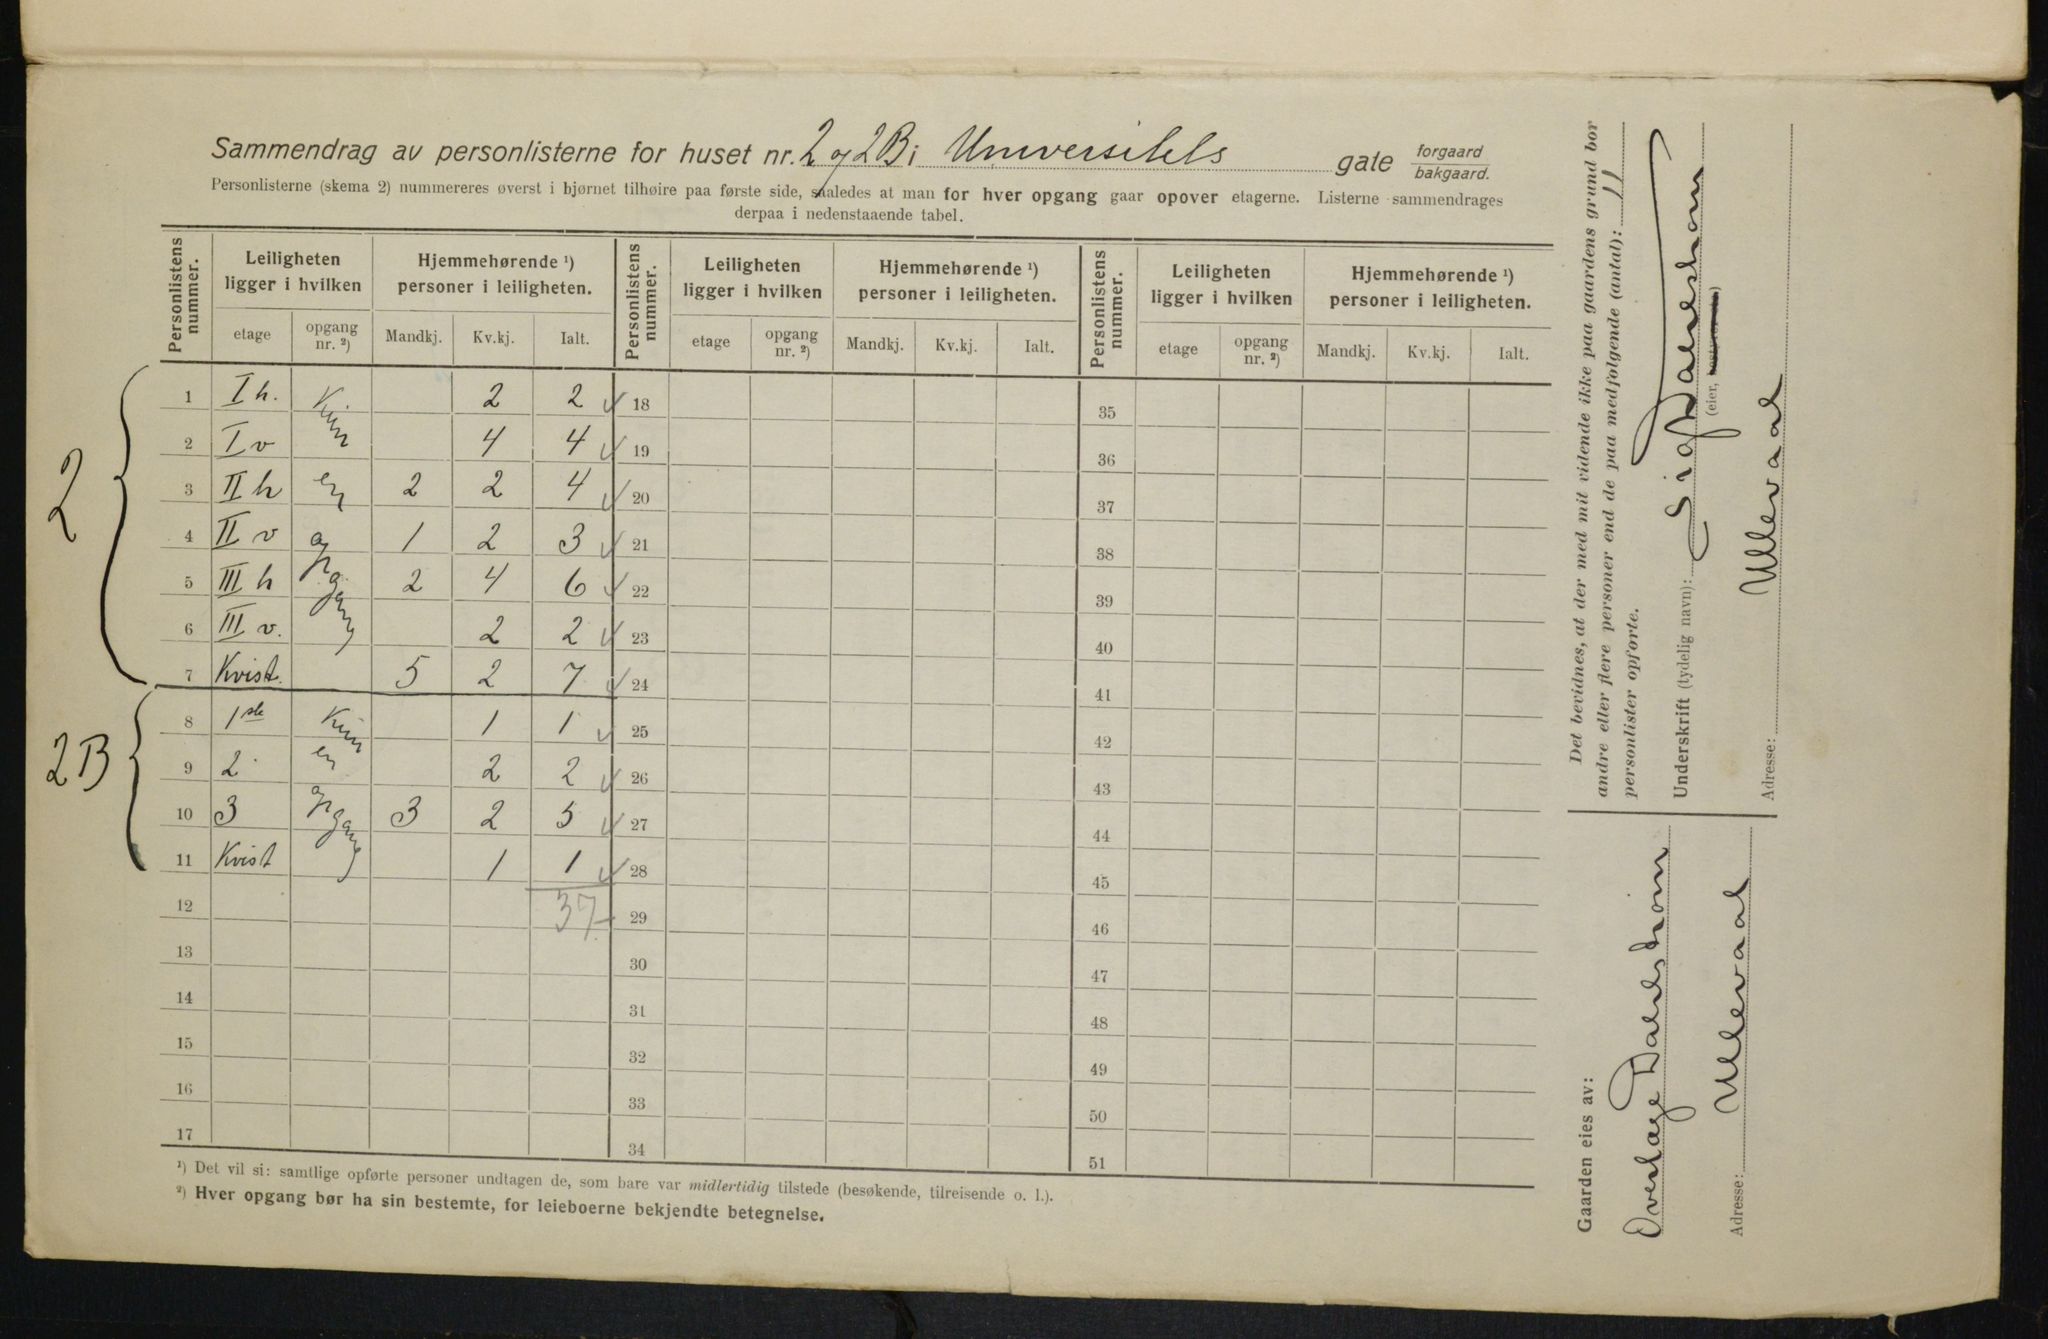 Sammendrag av personlisterne for huset nr. 2 og 2B i Universitets gate forgaard bakgaard.
Personlisterne (skema 2) nummereres øverst i hjørnet tilhøire paa første side, saaledes at man for hver opgang gaar opover etagerne. Listerne sammendrages
derpaa i nedenstaaende tabel.
Personlistens nummer. Leiligheten ligger i hvilken Hjemmehørende ¹) personer i leiligheten. Personlistens nummer. Leiligheten ligger i hvilken Hjemmehørende ¹) personer i leiligheten. Personlistens nummer. Leiligheten ligger i hvilken Hjemmehørende ¹) personer i leiligheten.
etage opgang nr. ²) Mandkj. Kv.kj. Ialt. etage opgang nr. ²) Mandkj. Kv.kj. Ialt. etage opgang nr. ²) Mandkj. Kv.kj. Ialt.
2
1 I h. Kun 2 2 18 35
2 I v 4 4 19 36
3 II h en 2 2 4 20 37
4 II v opgang 1 2 3 21 38
5 III h 2 4 6 22 39
6 III v. 2 2 23 40
7 Kvist. 5 2 7 24 41
2B
8 1ste Kun 1 1 25 42
9 2 en 2 2 26 43
10 3 opgang 3 2 5 27 44
11 Kvist 1 1 28 45
12 37 29 46
13 30 47
14 31 48
15 32 49
16 33 50
17 34 51
¹) Det vil si: samtlige opførte personer undtagen de, som bare var midlertidig tilstede (besøkende, tilreisende o. l.).
²) Hver opgang bør ha sin bestemte, for leieboerne bekjendte betegnelse.
Det bevidnes, at der med mit vidende ikke paa gaardens grund bor
andre eller flere personer end de paa medfølgende (antal): 11
personlister opførte.
Underskrift (tydelig navn):
(eier,
Adresse: Ullevaal
Gaarden eies av:
Overlæge
Adresse: Ullevaal